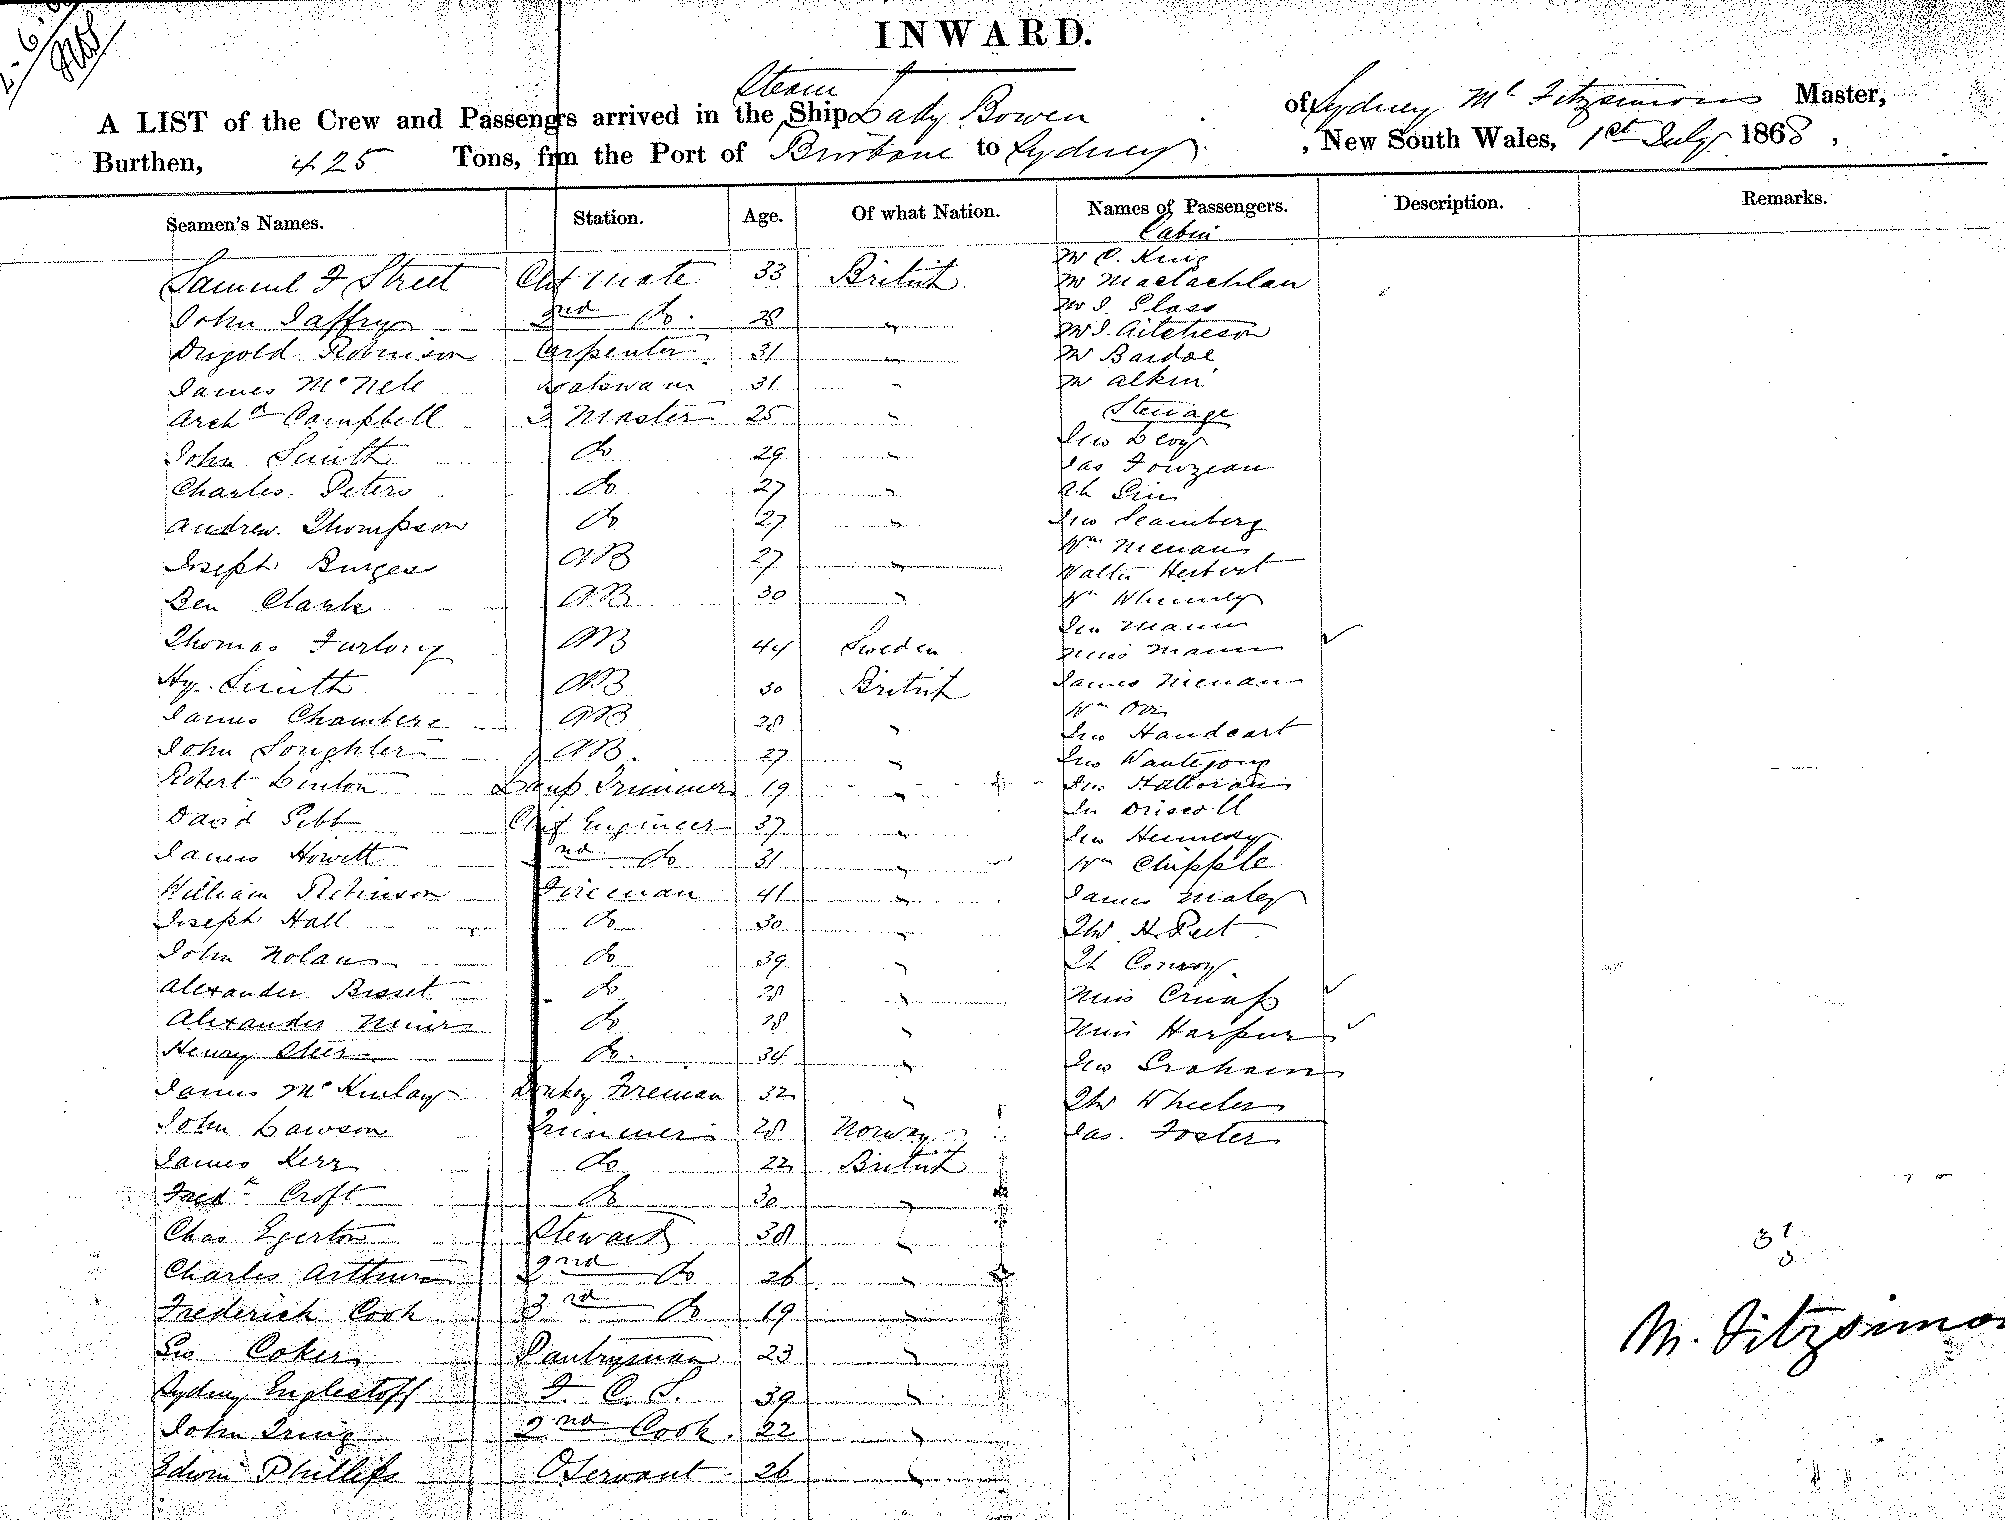 INWARD.
Steam
A LIST of the Crew and Passengrs arrived in the Ship Lady Bowen of Sydney Mc Fitzsimons Master,
Burthen, 425 Tons, frm the Port of Brisbane to Sydney , New South Wales, 1st July 1868 ,
Seamen's Names. Station. Age. Of what Nation. Names of Passengers. Description. Remarks.
Cabin
Samuel F Street Chf Mate 33 British Mr C. King
Mr Maclachlan
John Jaffry 2nd Do. 28 " Mr J. Glass
Mr J. Aitcheson
Dugold Robinson Carpenter 31 " Mr Bardoe
James McNele Boatswain 31 " Mr Alkin
Archd Campbell Q Master 25 " Steerage
John Smith Do 29 " Jno Levy
Jas Fouzean
Charles Peters Do 27 " Ah Sin
Andrew Thompson Do 27 " Jno Seamberg
Wm Nienan
Joseph Burges AB 27 " Walter Herbert
Ben Clark AB 30 " Wm
Jno Mann
Thomas Furlong AB 44 Sweden Miss Mann
Hy Smith AB 30 British James Nienan
James Chambers AB 28 " Wm Orr
Jno Handcart
John Loughler AB. 27 " Jno
Robert Linton Lamp Trimmer 19 " Jno Halloran
Jno Driscoll
David Gibb Chf Engineer 37 " Jno Hennesy
James Howitt nd Do 31 " Wm Chipple
William Robinson Fireman 41 " James Maley
Joseph Hall Do 30 " Thos H. Peet
John Nolan Do 39 " Th Conroy.
Alexander Bisset Do 28 " Miss Crump
Alexander Do 28 " Miss Harpur
Henry Do. 34 " Jno Graham
James McKinlay Donkey Fireman 32 " Thos Wheeler
John Lawson Trimmer 28 Norway Jas. Foster
James Kerr Do 22 British
Fredk Croft Do 30 "
Chas Egerton Steward 38 "
Charles Arthurs 2nd Do 26 "
Frederick Cook 3rd Do 19 "
Geo Coker Pantryman 23 "
Sydney Englestoff F. C. S. 39 "
John Irving 2nd Cook. 22 "
Edwin Phillips OServant 26 "
M. Fitzsimon